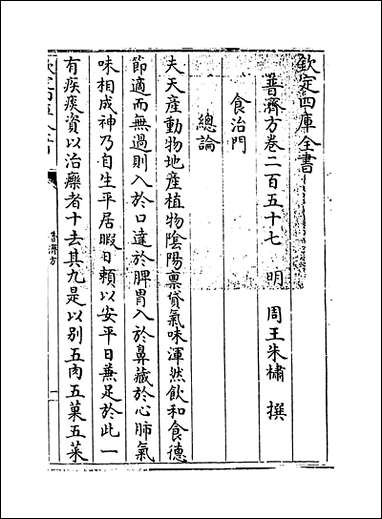 欽定四庫全書
普濟方卷二百五十七 明 周王朱橚 撰
食治門
總論
夫天産動物地産植物隂陽禀貸氣味渾然飲和食德
節適而無過則入於口達於脾胃入於鼻藏於心肺氣
味相成神乃自生平居暇日賴以安平日蕪足於此一
有疾疢資以治藥者十去其九是以别五肉五菓五菜
普濟方
一